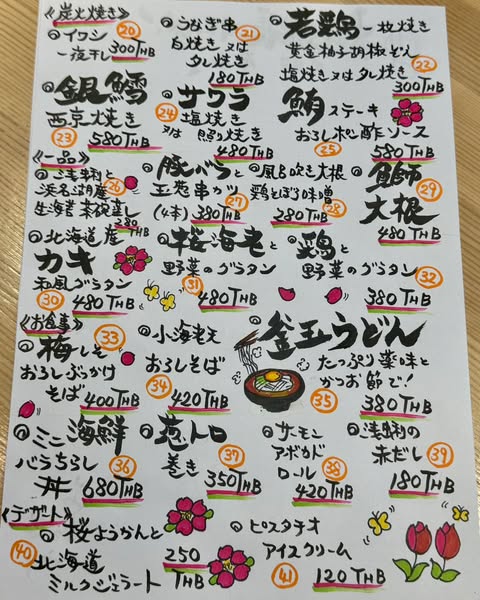 《炭火焼き》
イワシ 一夜干し 300THB ⑳
うなぎ串 ㉑
白焼き又は
タレ焼き
180THB
若鶏一枚焼き
黄金柚子胡椒どん
塩焼き又はタレ焼き ㉒
300THB
銀鱈
西京焼き
㉓ 580THB
サワラ
㉔ 塩焼き
又は 照り焼き
480THB
鮪ステーキ
おろしポン酢ソース
㉕ 580THB
《一品》
浅利と
浜名湖産 ㉖
生海苔茶碗蒸し
280THB
豚バラと
玉葱串カツ
(4本) 380THB ㉗
風呂吹き大根
鶏そぼろ味噌
280THB ㉘
鰤
大根 ㉙
480THB
北海道産
カキ
和風グラタン
㉚ 480THB
桜海老と
野菜のグラタン
㉛ 480THB
鶏と
野菜のグラタン
㉜ 380THB
《お食事》
梅しそ ㉝
おろしぶっかけ
そば 400THB
小海老天
おろしそば
㉞ 420THB
釜玉うどん
たっぷり薬味と
かつお節で!
㉟ 380THB
ミニ海鮮
バラちらし ㊱
丼 680THB
葱トロ
巻き ㊲
350THB
サーモン
アボカド
ロール ㊳
420THB
浅利の
赤だし ㊴
180THB
《デザート》
桜ようかんと
㊵ 北海道
ミルクジェラート
250
THB
ピスタチオ
アイスクリーム
㊶ 120THB